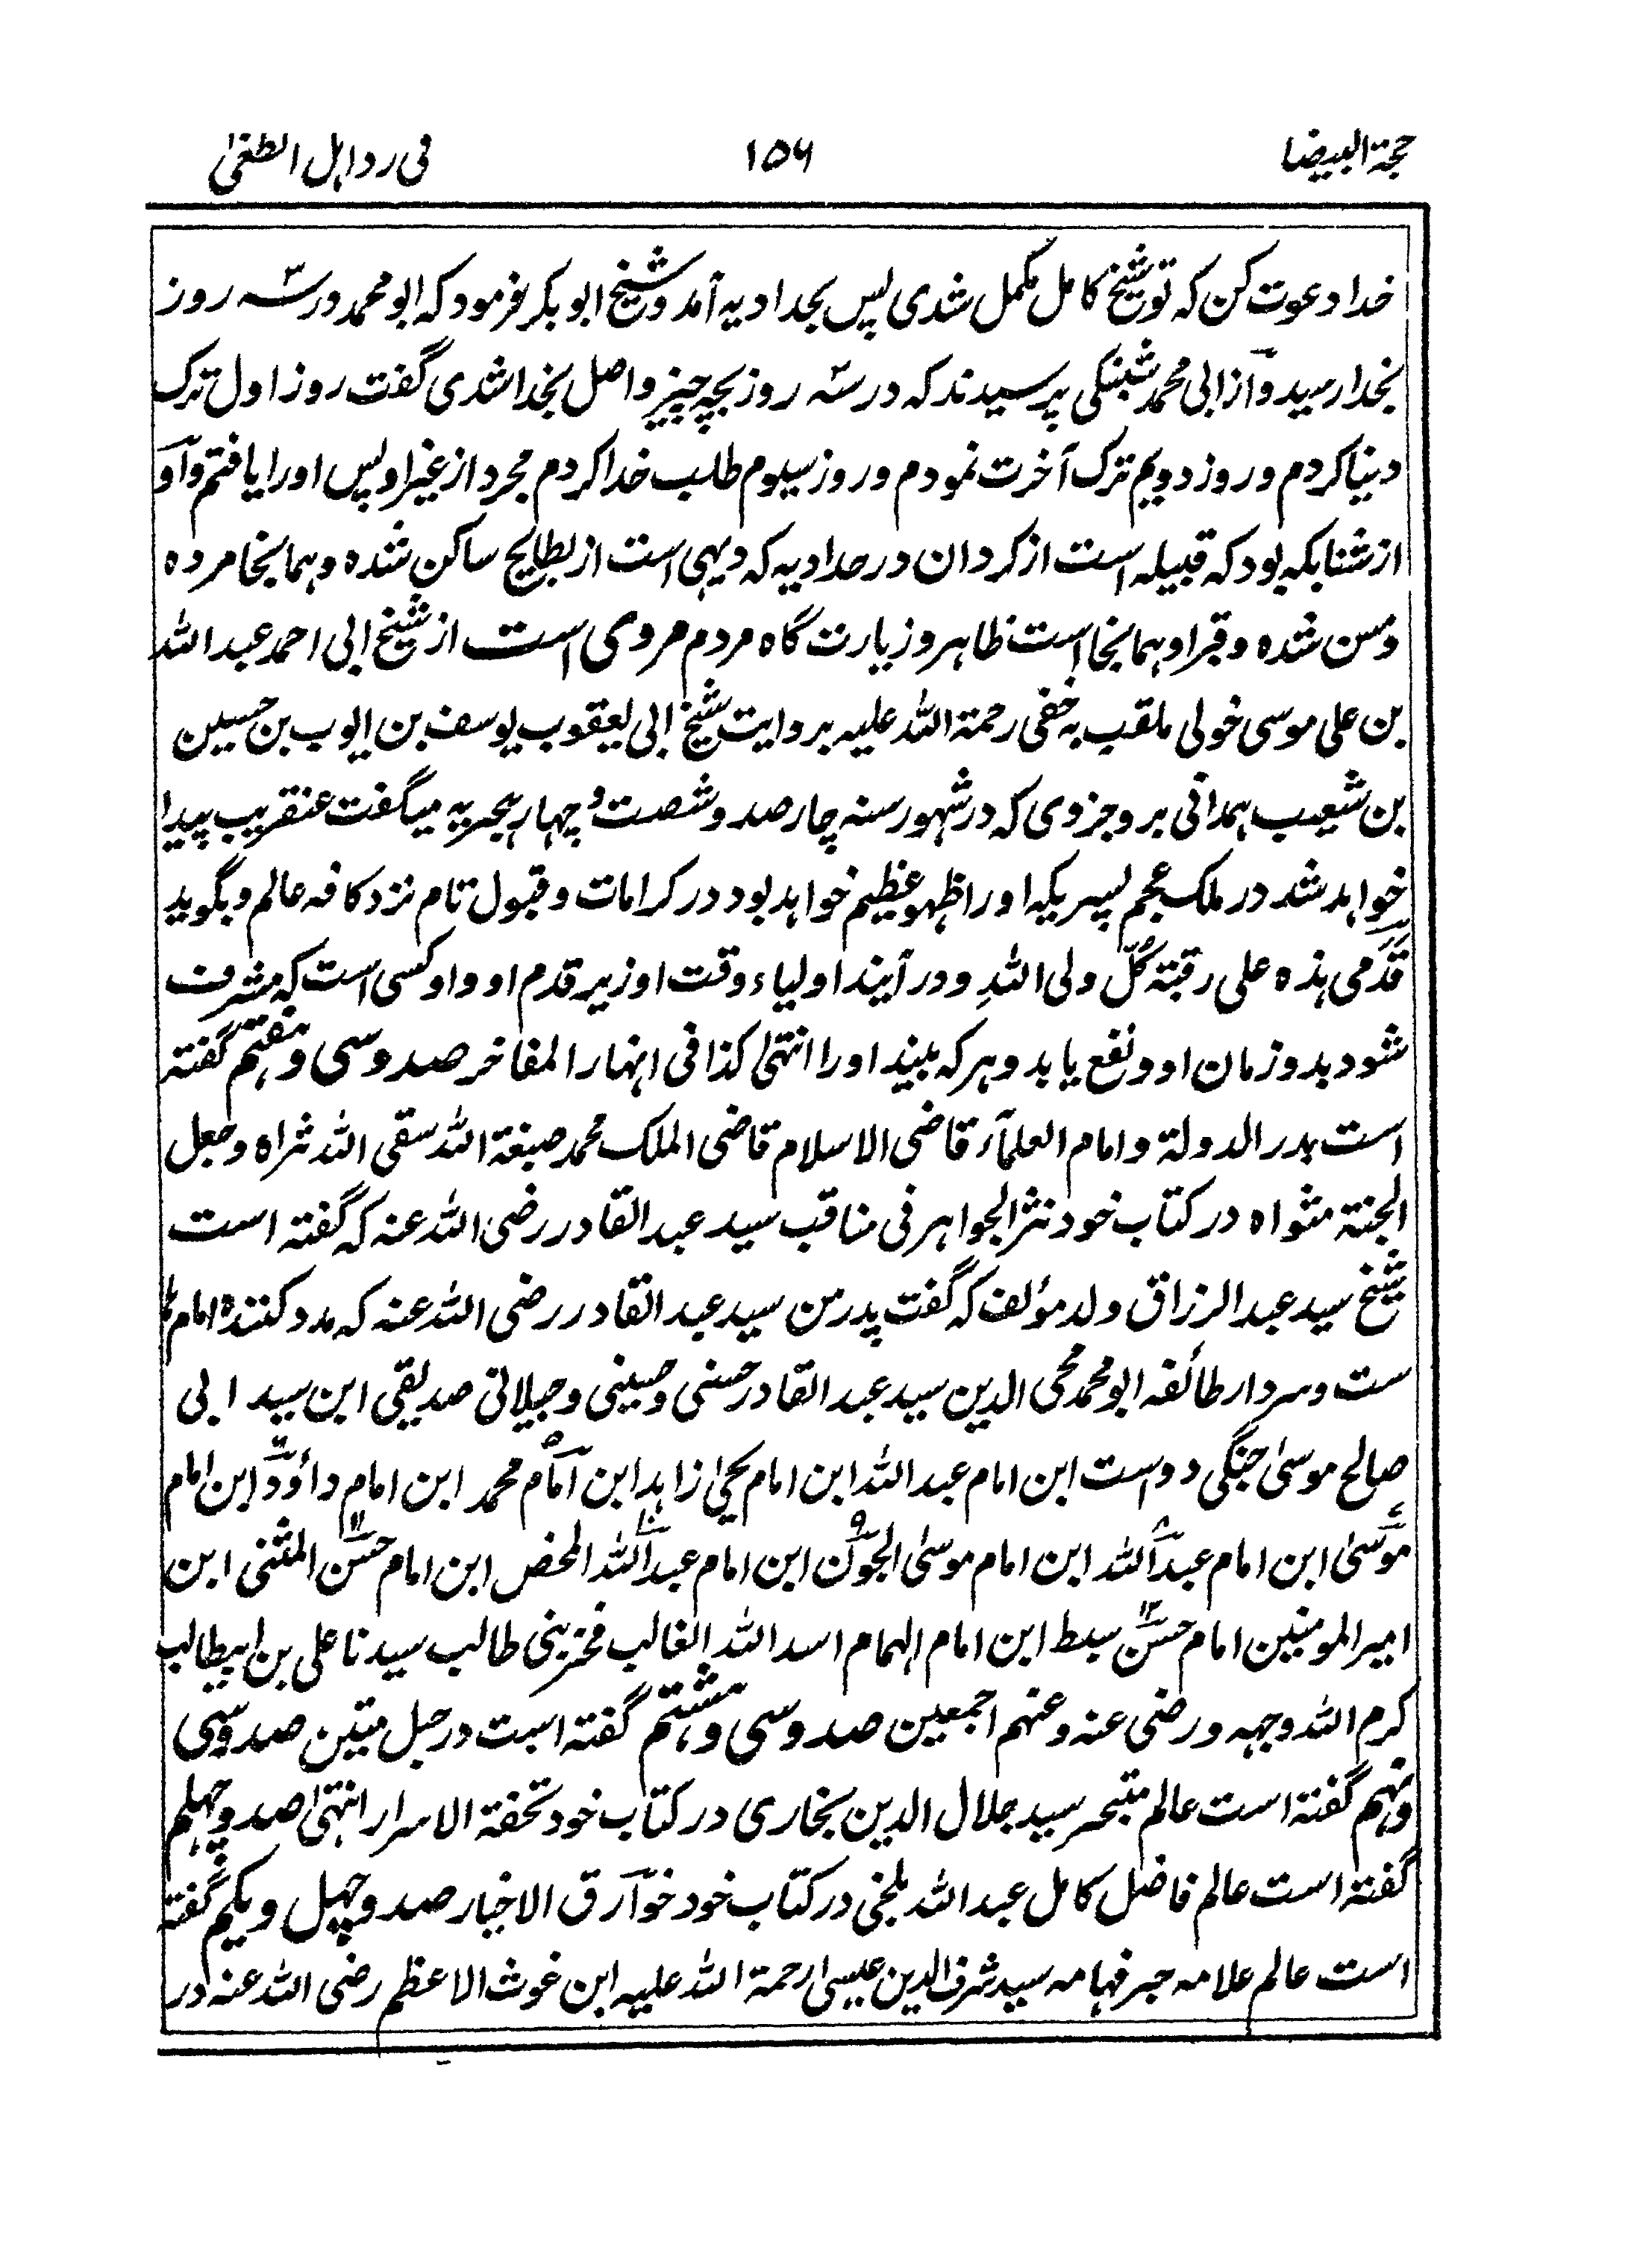 حجة البيضا ۱۵۶ فی رد اہل الطغیٰ
خدا دعوت کن کہ تو شیخ کامل مکمل شدی پس بحدادیہ آمد و شیخ ابوبکر بفرمود کہ ابو محمد در سہ روز
بخدا رسید و از ابی محمد شنبکی پرسیدند کہ در سہ روز بچہ چیز واصل بخدا شدی گفت روز اول ترک
دنیا کردم و روز دویم ترک آخرت نمودم و روز سیوم طلب خدا کردم مجرد از غیر او پس او را یافتم و او
از شنابکہ بود کہ قبیلہ است از کردان در حدادیہ کہ دیہی است از بطایح ساکن شدہ و ہمانجا مردہ
دفن شدہ و قبر او ہمانجا است ظاہر و زیارت گاہ مردم مروی است از شیخ ابی احمد عبد اللہ
بن علی موسی خولی ملقب بہ خفی رحمۃ اللہ علیہ بروایت شیخ ابی یعقوب یوسف بن ایوب بن حسین
بن شعیب ہمدانی بروجزوی کہ در شہور سنہ چار صد و شصت و چہار ہجریہ میگفت عنقریب پیدا
خواہد شد در ملک عجم پسریکہ او را ظہور عظیم خواہد بود در کرامات و قبول تام نزد کافہ عالم و بگوید
قَدَمی ہذہ علی رقبۃ کُلّ ولی اللہِ و در آیند اولیاء وقت او زیر قدم او و او کسی است کہ مشرف
شود بدو زمان او و نفع یابد و ہر کہ بیند او را انتہیٰ کذا فی انہار المفاخر صد و سی و ہفتم گفتہ
است بدر الدولۃ و امام العلمآء قاضی الاسلام قاضی الملک محمد صبغۃ اللہ سقی اللہ ثراہ و جعل
الجنۃ مثواہ در کتاب خود نثر الجواہر فی مناقب سید عبد القادر رضی اللہ عنہ کہ گفتہ است
شیخ سید عبد الرزاق ولد مؤلف کہ گفت پدر من سید عبد القادر رضی اللہ عنہ کہ مدد کنندہ امام ما
ست و سردار طائفہ ابو محمد محی الدین سید عبد القادر حسنی و حسینی و جیلانی صدیقی ابن سید ابی
صالح موسیٰ جنگی دوست ابن امام عبد اللہ ابن امام یحیٰ زاہد ابن امام محمد ابن امام داؤد ابن امام
موسیٰ ابن امام عبد اللہ ابن امام موسیٰ الجون ابن امام عبد اللہ المحض ابن امام حسن المثنی ابن
امیر المومنین امام حسن سبط ابن امام الہمام اسد اللہ الغالب فخر بنی طالب سیدنا علی بن ابیطالب
کرم اللہ وجہہ و رضی عنہ و عنہم اجمعین صد و سی و ہشتم گفتہ است در حبل متین صد و سی
و نہم گفتہ است عالم متبحر سید جلال الدین بخاری در کتاب خود تحفۃ الاسرار انتہیٰ صد و چہلم
گفتہ است عالم فاضل کامل عبد اللہ بلخی در کتاب خود خوآرق الاخبار صد و چہل و یکم گفتہ
است عالم علامہ حبر فہامہ سید شرف الدین عیسی رحمۃ اللہ علیہ ابن غوث الاعظم رضی اللہ عنہ در